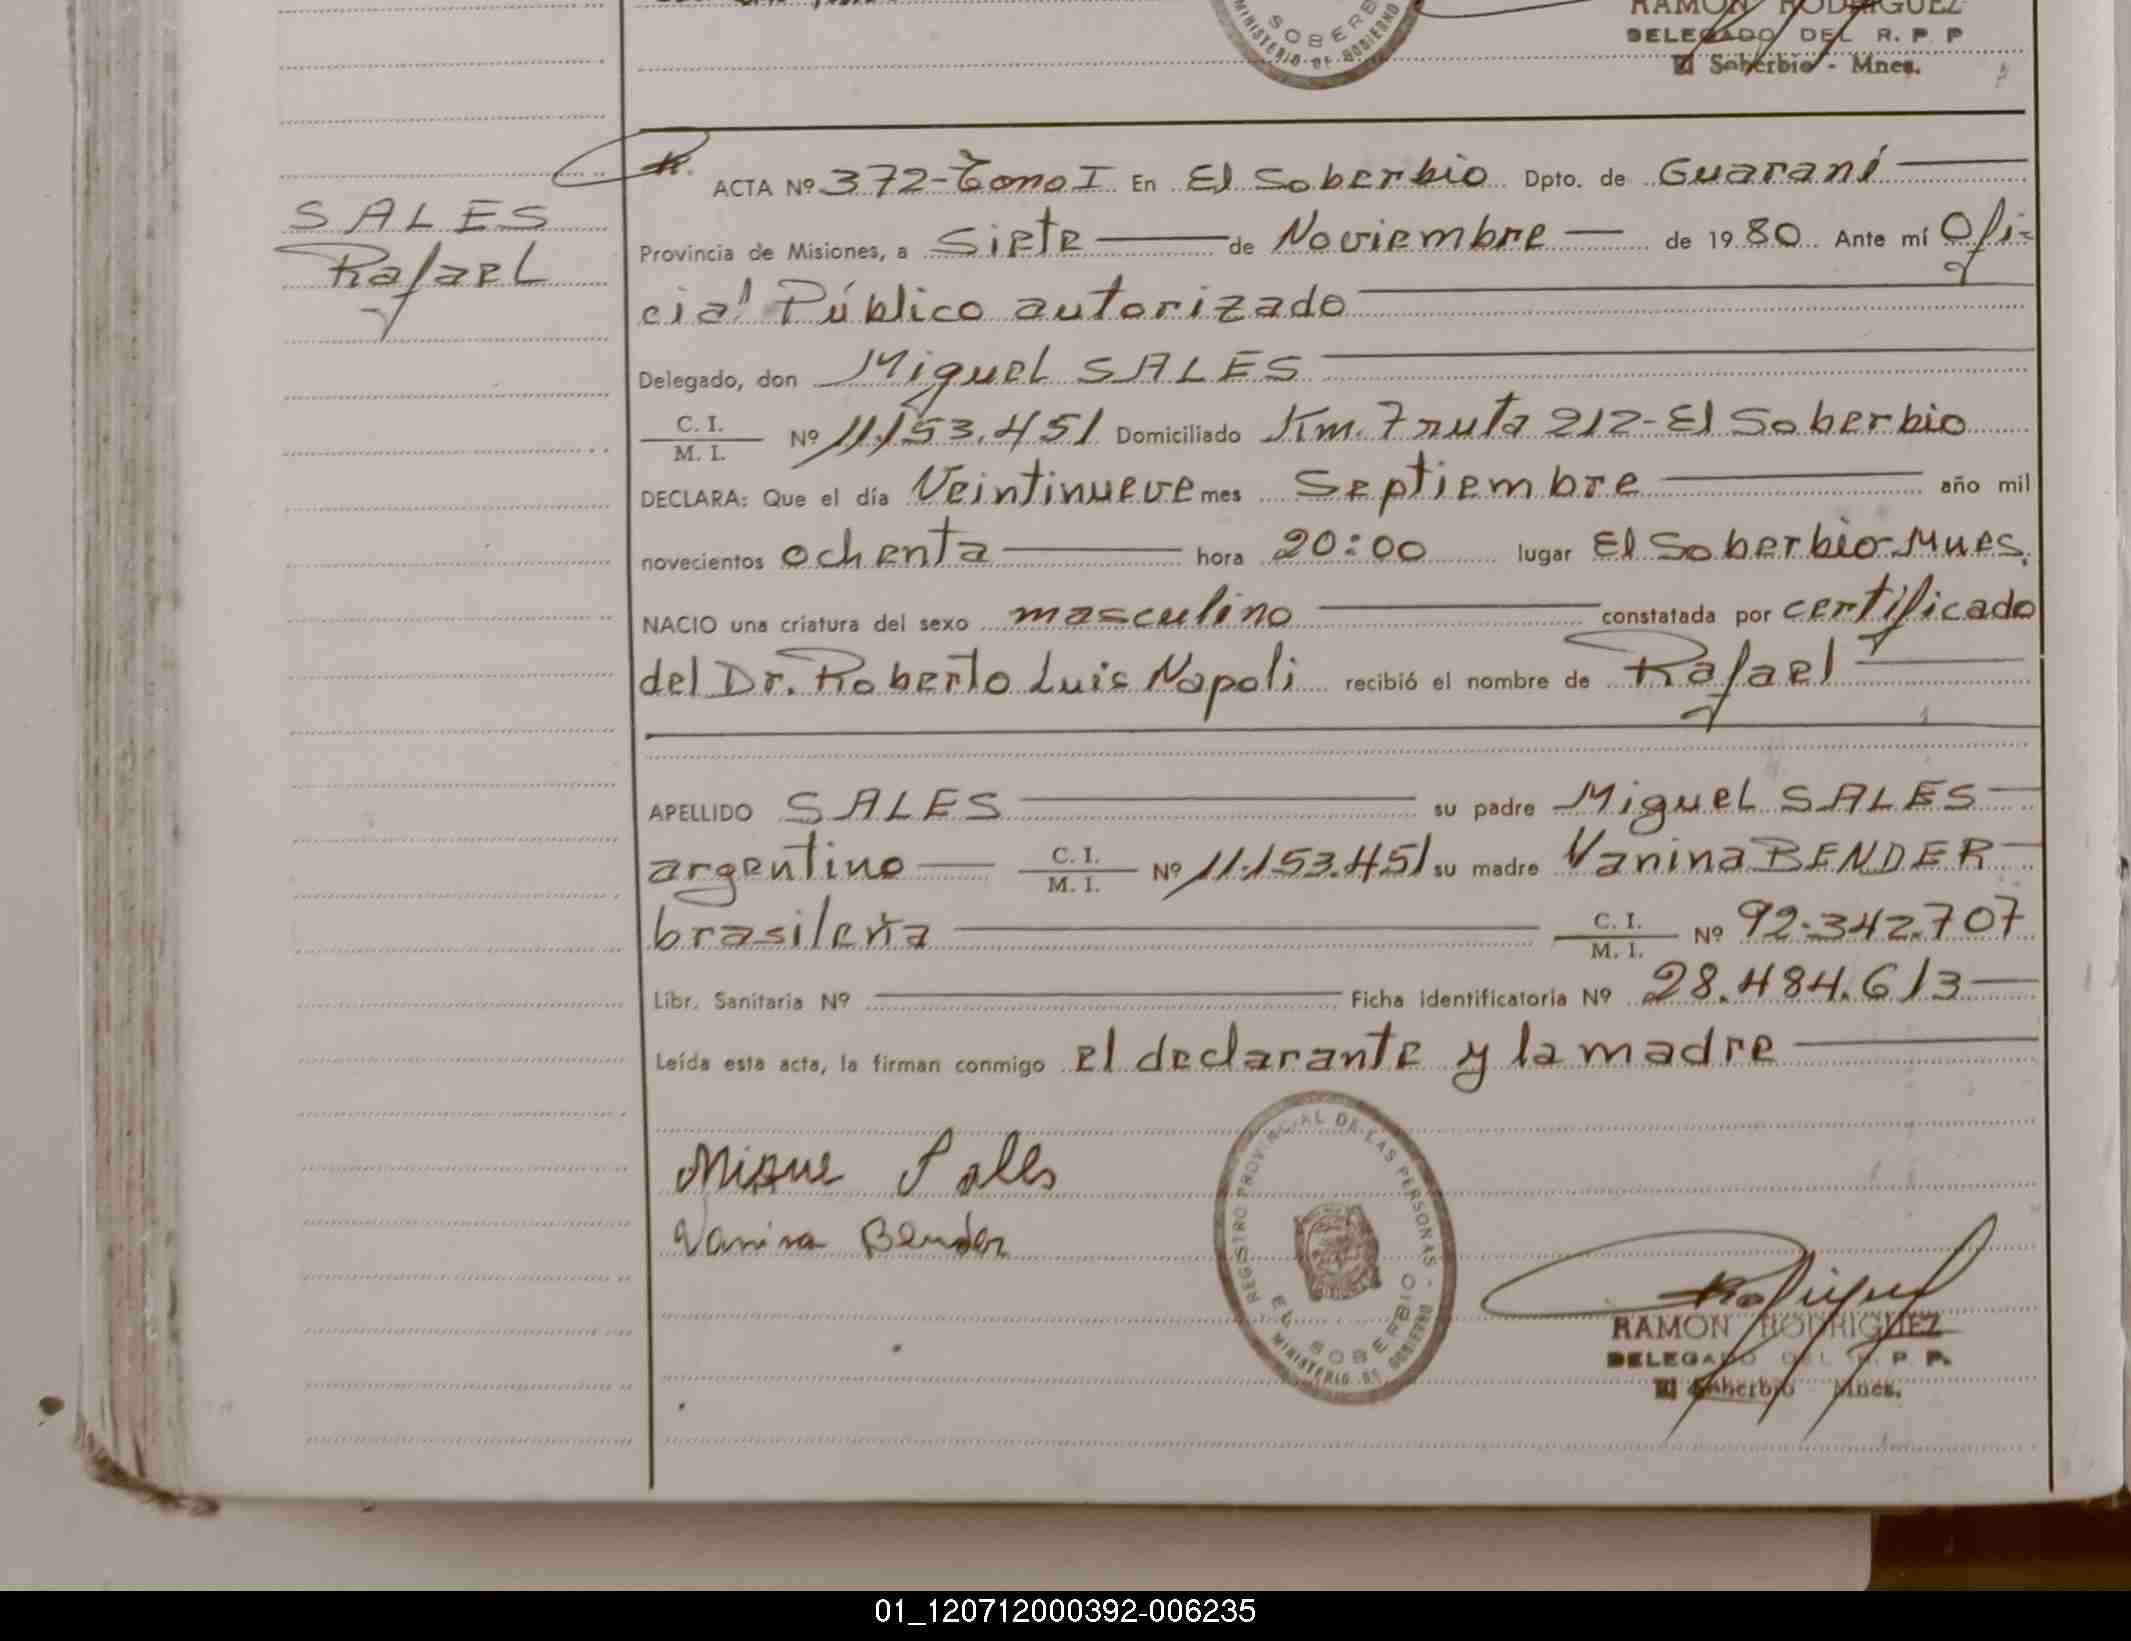 RAMON RODRIGUEZ
DELEGADO DEL R. P. P
SOBERB
MINISTERIO DE GOBIERNO
El Soberbio - Mnes.
ACTA Nº 372-Tomo I En El Soberbio Dpto. de Guaraní
SALES
Rafael
Provincia de Misiones, a Siete de Noviembre de 1980 Ante mí Ofi-
cial Público autorizado
Delegado, don Miguel SALES
C. I.
M. I.
Nº 11.153.451 Domiciliado Km. 7 ruta 212-El Soberbio
DECLARA: Que el día Veintinueve mes Septiembre año mil
novecientos ochenta hora 20:00 lugar El Soberbio-Mnes.
NACIO una criatura del sexo masculino constatada por certificado
del Dr. Roberto Luis Napoli recibió el nombre de Rafael
APELLIDO SALES su padre Miguel SALES
argentino C. I. M. I. Nº 11.153.451 su madre Vanina BENDER
brasileña C. I. M. I. Nº 92.342.707
Libr. Sanitaria Nº Ficha identificatoria Nº 28.484.613
Leída esta acta, la firman conmigo el declarante y la madre
Migue Sales
Vanina Bender
REGISTRO PROVINCIAL DE LAS PERSONAS -
EL SOBERBIO
MINISTERIO DE GOBIERNO
RAMON RODRIGUEZ
DELEGADO DEL R. P. P.
El Soberbio Mnes.
01_120712000392-006235